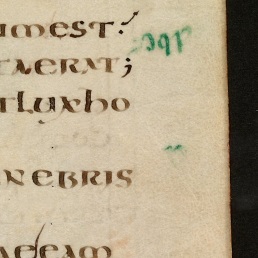 umest:
taerat;
tluxho
nebris
aeeam